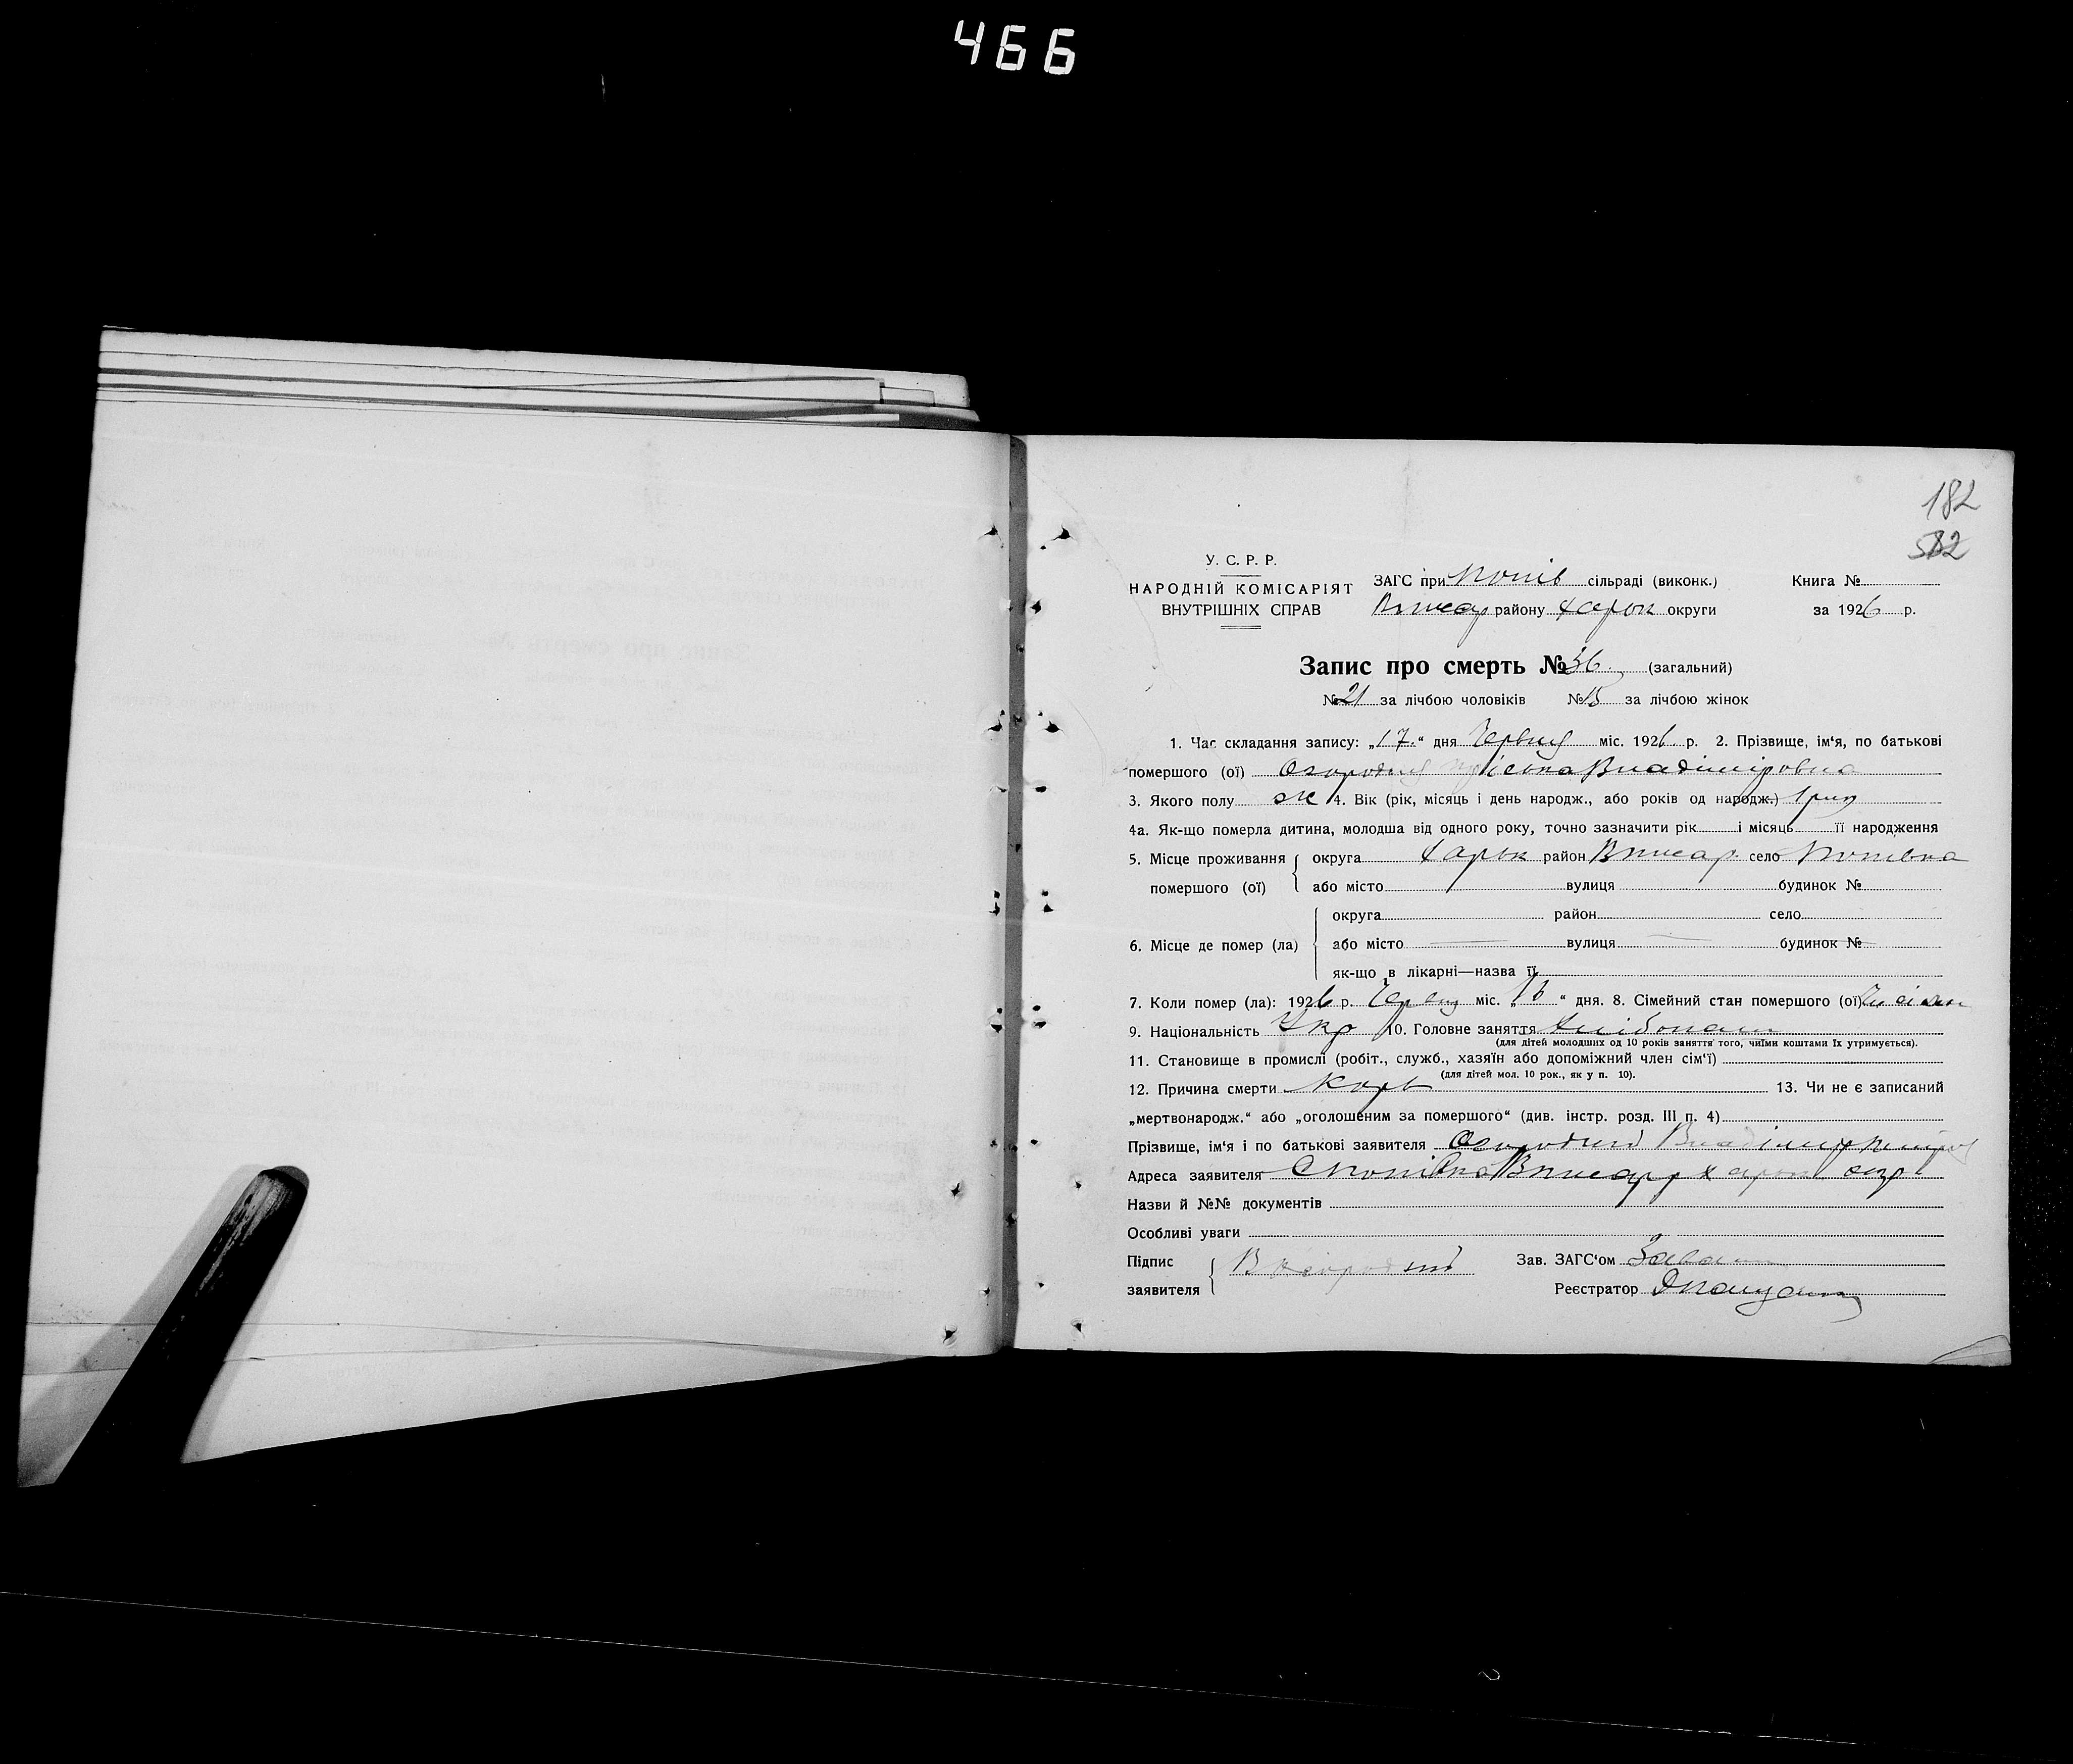 466
182
582
У. С. Р. Р.
НАРОДНІЙ КОМІСАРІЯТ
ВНУТРІШНІХ СПРАВ
ЗАГС при Попів сільраді (виконк.)
району Харьк округи
Книга №
за 1926 р.
Запис про смерть № 36 (загальний)
№ 21 за лічбою чоловіків № 15 за лічбою жінок
1. Час складання запису: „17.“ дня Червня міс. 1926. р. 2. Прізвище, ім‘я, по батькові
помершого (ої) Огородня Владіміровна
3. Якого полу ж 4. Вік (рік, місяць і день народж., або років од народж.) 1 рик
4а. Як-що померла дитина, молодша від одного року, точно зазначити рік і місяць її народження
5. Місце проживання помершого (ої)
округа Харьк район село Попівка
або місто вулиця будинок №
6. Місце де помер (ла)
округа район село
або місто вулиця будинок №
як-що в лікарні—назва її
7. Коли помер (ла): 1926 р. Червня міс. „16“ дня. 8. Сімейний стан помершого (ої)
9. Національність Укр 10. Головне заняття Хлібопаш
(для дітей молодших од 10 років заняття того, чиїми коштами їх утримується).
11. Становище в промислі (робіт., служб., хазяїн або допоміжний член сім‘ї)
(для дітей мол. 10 рок., як у п. 10).
12. Причина смерти Корь 13. Чи не є записаний
„мертвонародж.“ або „оголошеним за помершого“ (див. інстр. розд. III п. 4)
Прізвище, ім‘я і по батькові заявителя Огородній Владімир
Адреса заявителя с Попівка Харьк окр
Назви й №№ документів
Особливі уваги
Підпис заявителя В Огородний
Зав. ЗАГС‘ом
Реєстратор